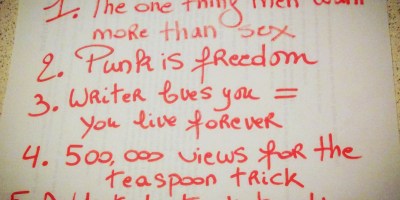 1. The one thing men want
more than sex
2. Punk is freedom
3. Writer loves you =
you live forever
4. 500,000 views for the
teaspoon trick
5.